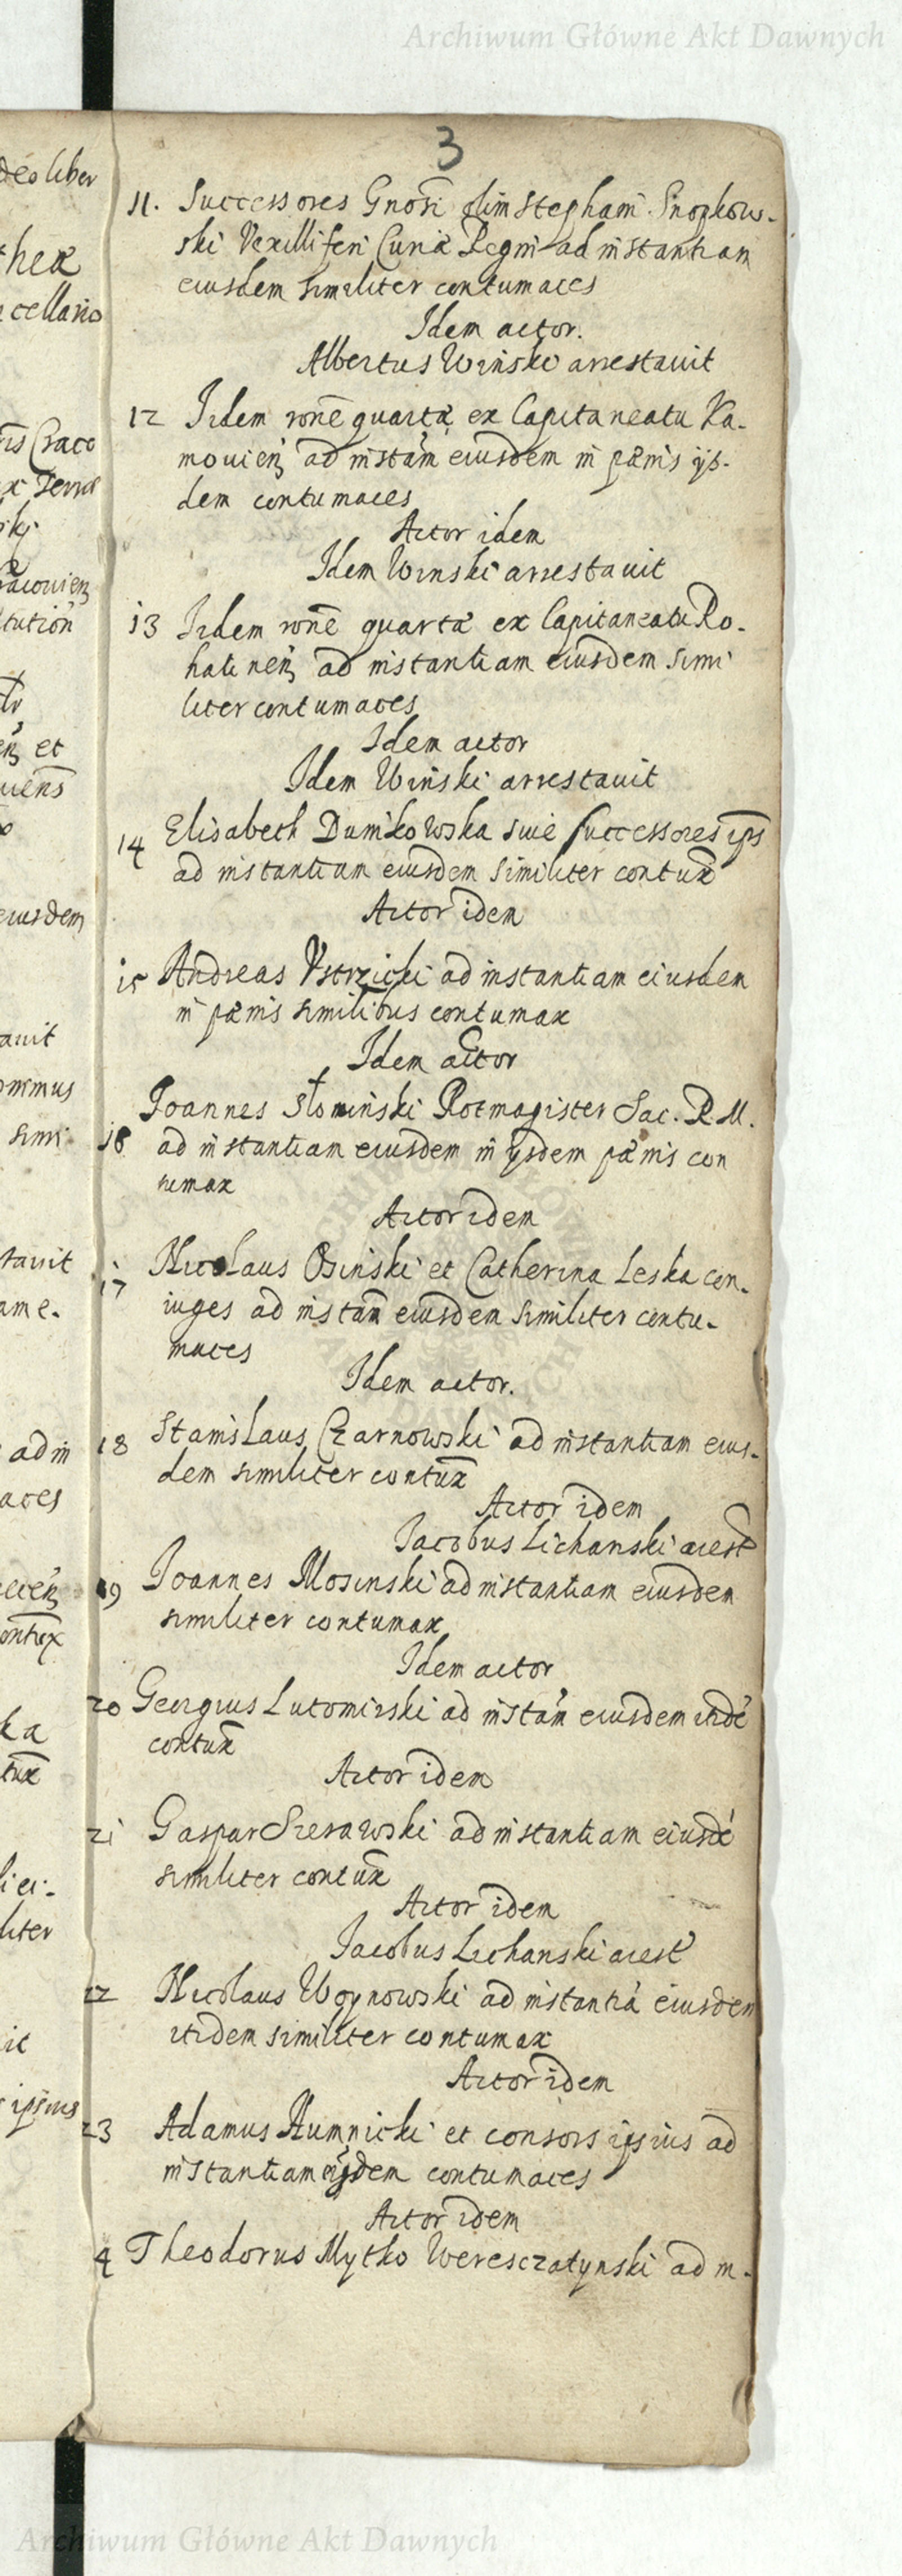 Archiwum Główne Akt Dawnych
3
11. Successores Gnosi olim Stephani Snopkow-
ski Vexilliferi Curiæ Regni ad instantiam
eiusdem similiter contumaces
Idem actor.
Albertus Winski arrestauit
12 Iidem rõne quartæ ex Capitaneatu Ka-
mouien ad instam eiusdem in pænis ijs-
dem contumaces
Actor idem
Idem Winski arrestauit
13 Iidem rõne quartæ ex Capitaneatu Ro-
hatinen ad instantiam eiusdem simi
liter contumaces
Idem actor
Idem Winski arrestauit
14 Elisabeth Dunikowska siue successores ips
ad instantiam eiusdem similiter contux
Actor idem
15 Andreas Vstrzicki ad instantiam eiusdem
in pænis similibus contumax
Idem actor
Joannes Słoninski Rotmagister Sac. R. M.
16 ad instantiam eiusdem in ijsdem pænis con
tumax
Actor idem
17 Nicolaus Osinski et Catherina Leska con-
iuges ad instam eiusdem similiter contu-
maces
Idem actor.
18 Stanislaus Czarnowski ad instantiam eius-
dem similiter contux
Actor idem
Jacobus Lichanski arest
19 Joannes Mosinski ad instantiam eiusdem
similiter contumax
Idem actor
20 Georgius Lutomirski ad instam eiusdem itidé
contux
Actor idem
21 Gaspar Sierawski ad instantiam eiusdé
similiter contux
Actor idem
Jacobus Lichanski arest
22 Nicolaus Woynowski ad instantiá eiusdem
itidem similiter contumax
Actor idem
23 Adamus Humnicki et consors ipsius ad
instantiam eiusdem contumaces
Actor idem
4 Theodorus Mytko Weresczatynski ad in-
Archiwum Główne Akt Dawnych